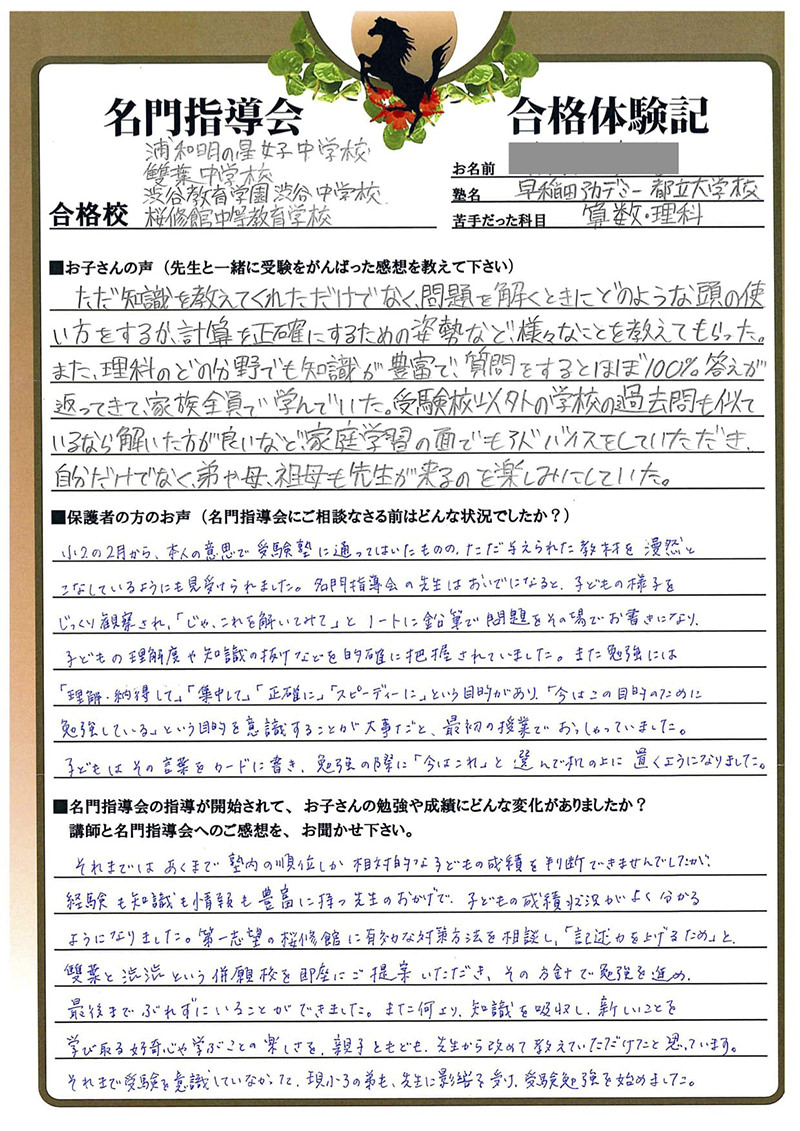 名門指導会
合格体験記
合格校
浦和明の星女子中学校
雙葉中学校
渋谷教育学園渋谷中学校
桜修館中等教育学校
お名前
塾名 早稲田アカデミー 都立大学校
苦手だった科目 算数・理科
■お子さんの声(先生と一緒に受験をがんばった感想を教えて下さい)
ただ知識を教えてくれただけでなく、問題を解くときにどのような頭の使
い方をするか、計算を正確にするための姿勢など、様々なことを教えてもらった。
また、理科のどの分野でも知識が豊富で、質問をするとほぼ100%答えが
返ってきて、家族全員で学んでいた。受験校以外の学校の過去問も似て
いるなら解いた方が良いなど、家庭学習の面でもアドバイスをしていただき、
自分だけでなく、弟や母、祖母も先生が来るのを楽しみにしていた。
■保護者の方のお声(名門指導会にご相談なさる前はどんな状況でしたか?)
小2の2月から、本人の意思で受験塾に通ってはいたものの、ただ与えられた教材を漫然と
こなしているようにも見受けられました。名門指導会の先生はおいでになると、子どもの様子を
じっくり観察され、「じゃ、これを解いてみて」とノートに鉛筆で問題をその場でお書きになり、
子どもの理解度や知識の抜けなどを的確に把握されていました。また勉強には
「理解・納得して」「集中して」「正確に」「スピーディーに」という目的があり、「今はこの目的のために
勉強している」という目的を意識することが大事だと、最初の授業でおっしゃっていました。
子どもはその言葉をカードに書き、勉強の際に「今はこれ」と選んで机の上に置くようになりました。
■名門指導会の指導が開始されて、お子さんの勉強や成績にどんな変化がありましたか?
講師と名門指導会へのご感想を、お聞かせ下さい。
それまではあくまで塾内の順位しか相対的な子どもの成績を判断できませんでしたが、
経験も知識も情報も豊富に持つ先生のおかげで、子どもの成績状況がよく分かる
ようになりました。第一志望の桜修館に有効な対策方法を相談し、「記述力を上げるため」と、
雙葉と渋渋という併願校を即座にご提案いただき、その方針で勉強を進め、
最後までぶれずにいることができました。また何より、知識を吸収し、新しいことを
学び取る好奇心や学ぶことの楽しさを、親子ともども、先生から改めて教えていただけたと思っています。
それまで受験を意識していなかった、現小3の弟も、先生に影響を受け、受験勉強を始めました。